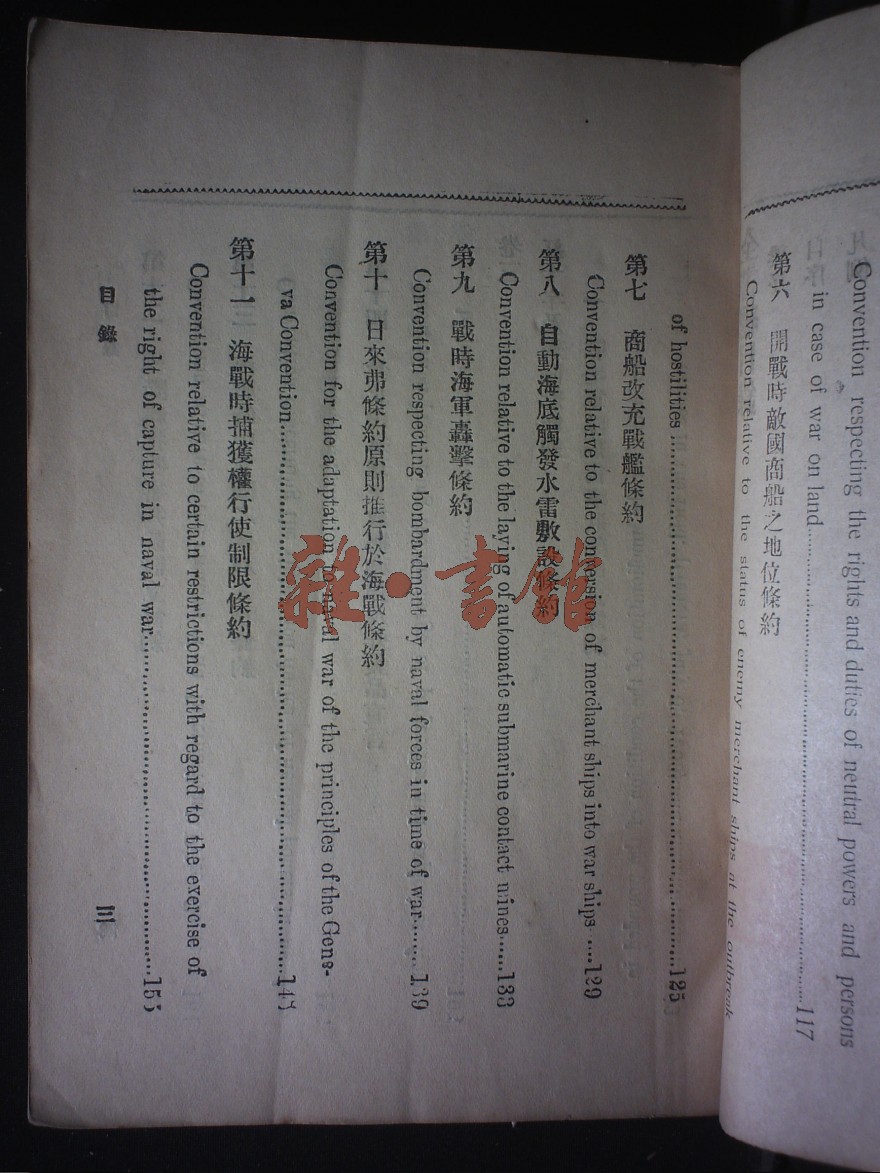 Convention respecting the rights and duties of neutral powers and persons
in case of war on land..............................117
第六 開戰時敵國商船之地位條約
Convention relative to the status of enemy merchant ships at the outbreak
of hostilities..............................125
第七 商船改充戰艦條約
Convention relative to the conversion of merchant ships into war ships ....129
第八 自動海底觸發水雷敷設條約
Convention relative to the laying of automatic submarine contact mines......133
第九 戰時海軍轟擊條約
Convention respecting bombardment by naval forces in time of war........139
第十 日來弗條約原則推行於海戰條約
Convention for the adaptation to naval war of the principles of the Gene-
va Convention..............................143
第十一 海戰時捕獲權行使制限條約
Convention relative to certain restrictions with regard to the exercise of
the right of capture in naval war..............................155
目錄
三
雜·書館